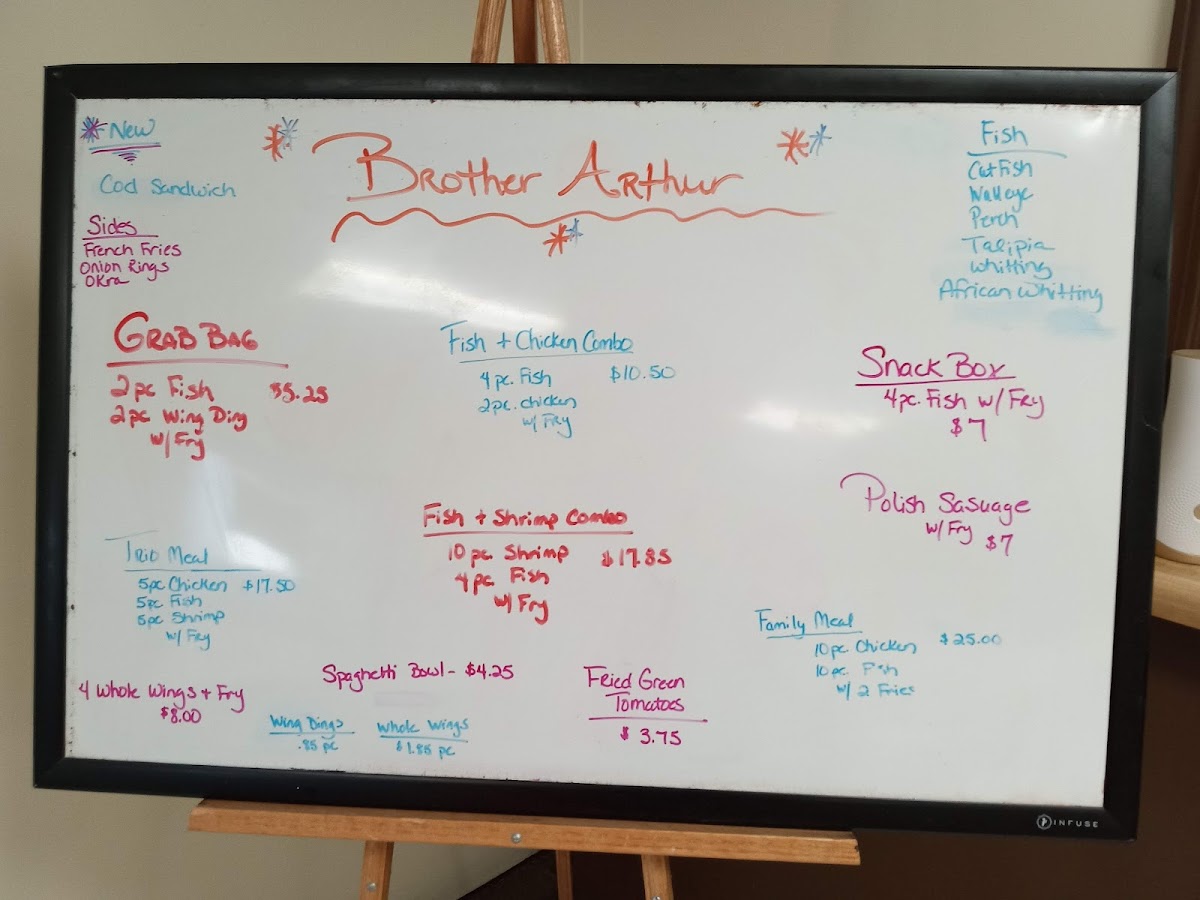 New
Cod Sandwich
Sides
French Fries
Onion Rings
OKra
Brother Arthur
Fish
CatFish
Walleye
Perch
Talipia
Whitting
African Whitting
Grab Bag
2 pc Fish $5.25
2 pc Wing Ding
w/ Fry
Fish + Chicken Combo
4 pc. Fish $10.50
2 pc. chicken
w/ Fry
Snack Box
4 pc. Fish w/ Fry
$7
Polish Sasuage
w/ Fry $7
Fish + Shrimp Combo
10 pc Shrimp $17.85
4 pc Fish
w/ Fry
Trio Meal
5pc Chicken $17.50
5pc Fish
5pc Shrimp
w/ Fry
Family Meal
10 pc. Chicken $25.00
10 pc. Fish
w/ 2 Fries
4 Whole Wings + Fry
$8.00
Spaghetti Bowl - $4.25
Wing Dings
.85 pc
Whole Wings
$1.85 pc
Fried Green
Tomatoes
$ 3.75
INFUSE